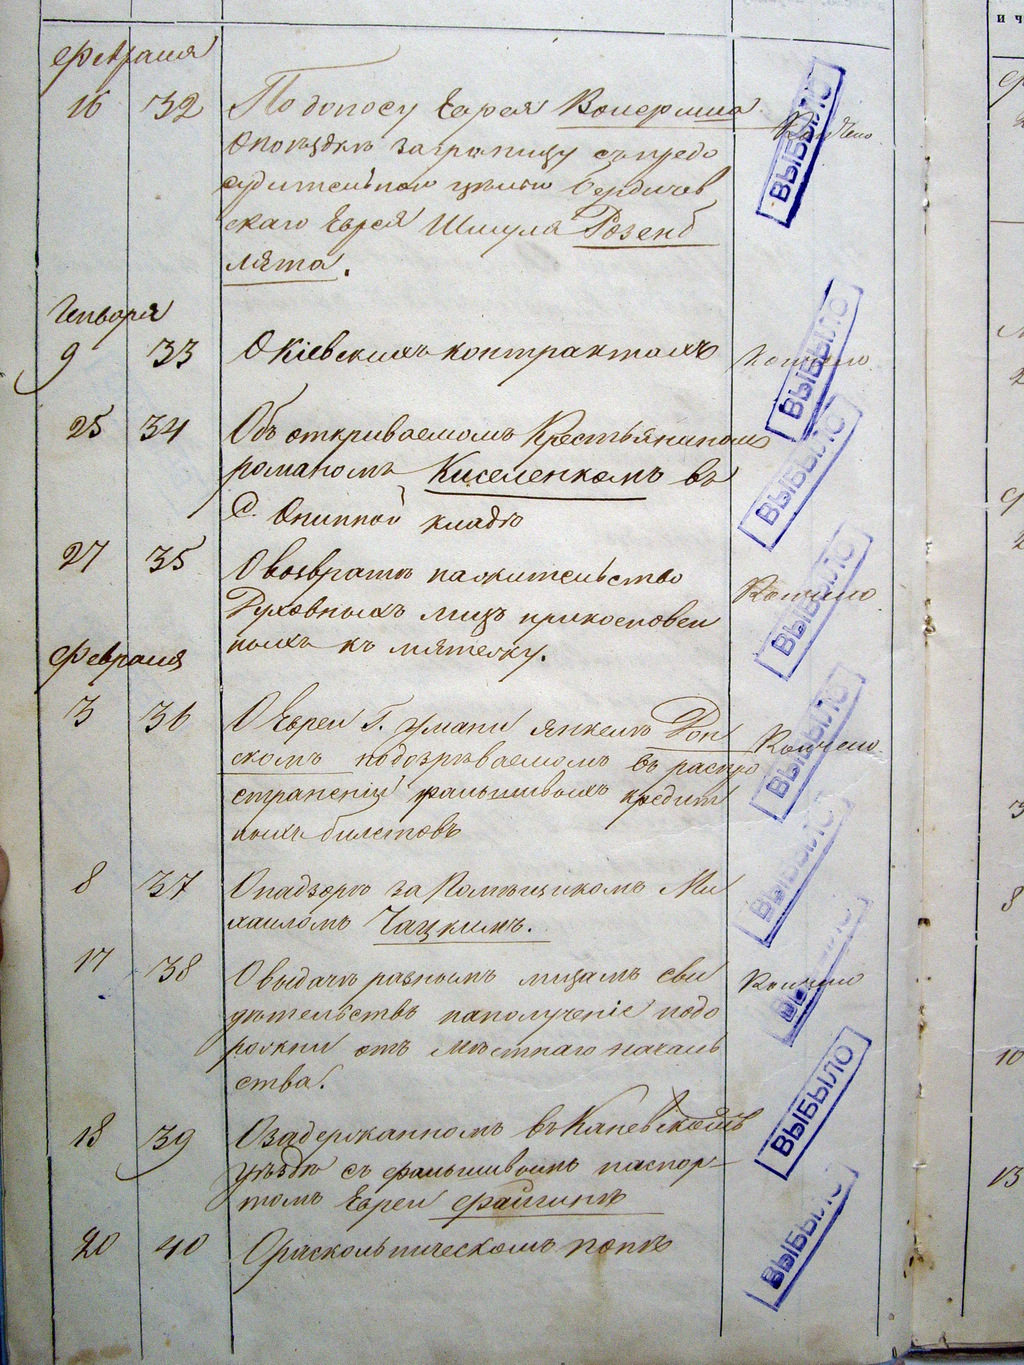 Февраля
16 32 По доносу Еврея
о поездке заграницу съ предо
судительной целью Бердичев
скаго Еврея Шмуля Розенб
лята.
ВЫБЫЛО
Генваря
9 33 О Кіевскихъ контрактахъ
ВЫБЫЛО
25 34 Объ открываемомъ Крестьяниномъ
романомъ Киселенкомъ въ
с. кладе
ВЫБЫЛО
27 35 О возврате на жительство
Духовныхъ лицъ прикосновен
ныхъ къ мятежу.
ВЫБЫЛО
Февраля
3 36 О Еврее Г. Умани Янкеле Дон
скомъ подозреваемомъ въ распро
страненіи фальшивыхъ кредит
ныхъ билетовъ
Кончено
ВЫБЫЛО
8 37 О надзоре за Помещикомъ Ми
хаиломъ Чацкимъ.
ВЫБЫЛО
17 38 О выдаче разнымъ лицамъ сви
детельствъ на полученіе подо
рожни отъ местнаго началь
ства.
ВЫБЫЛО
18 39 О задержанномъ въ Каневскомъ
уезде съ фальшивымъ паспор-
томъ Еврее Файгине
ВЫБЫЛО
20 40 О раскольническомъ попе
ВЫБЫЛО